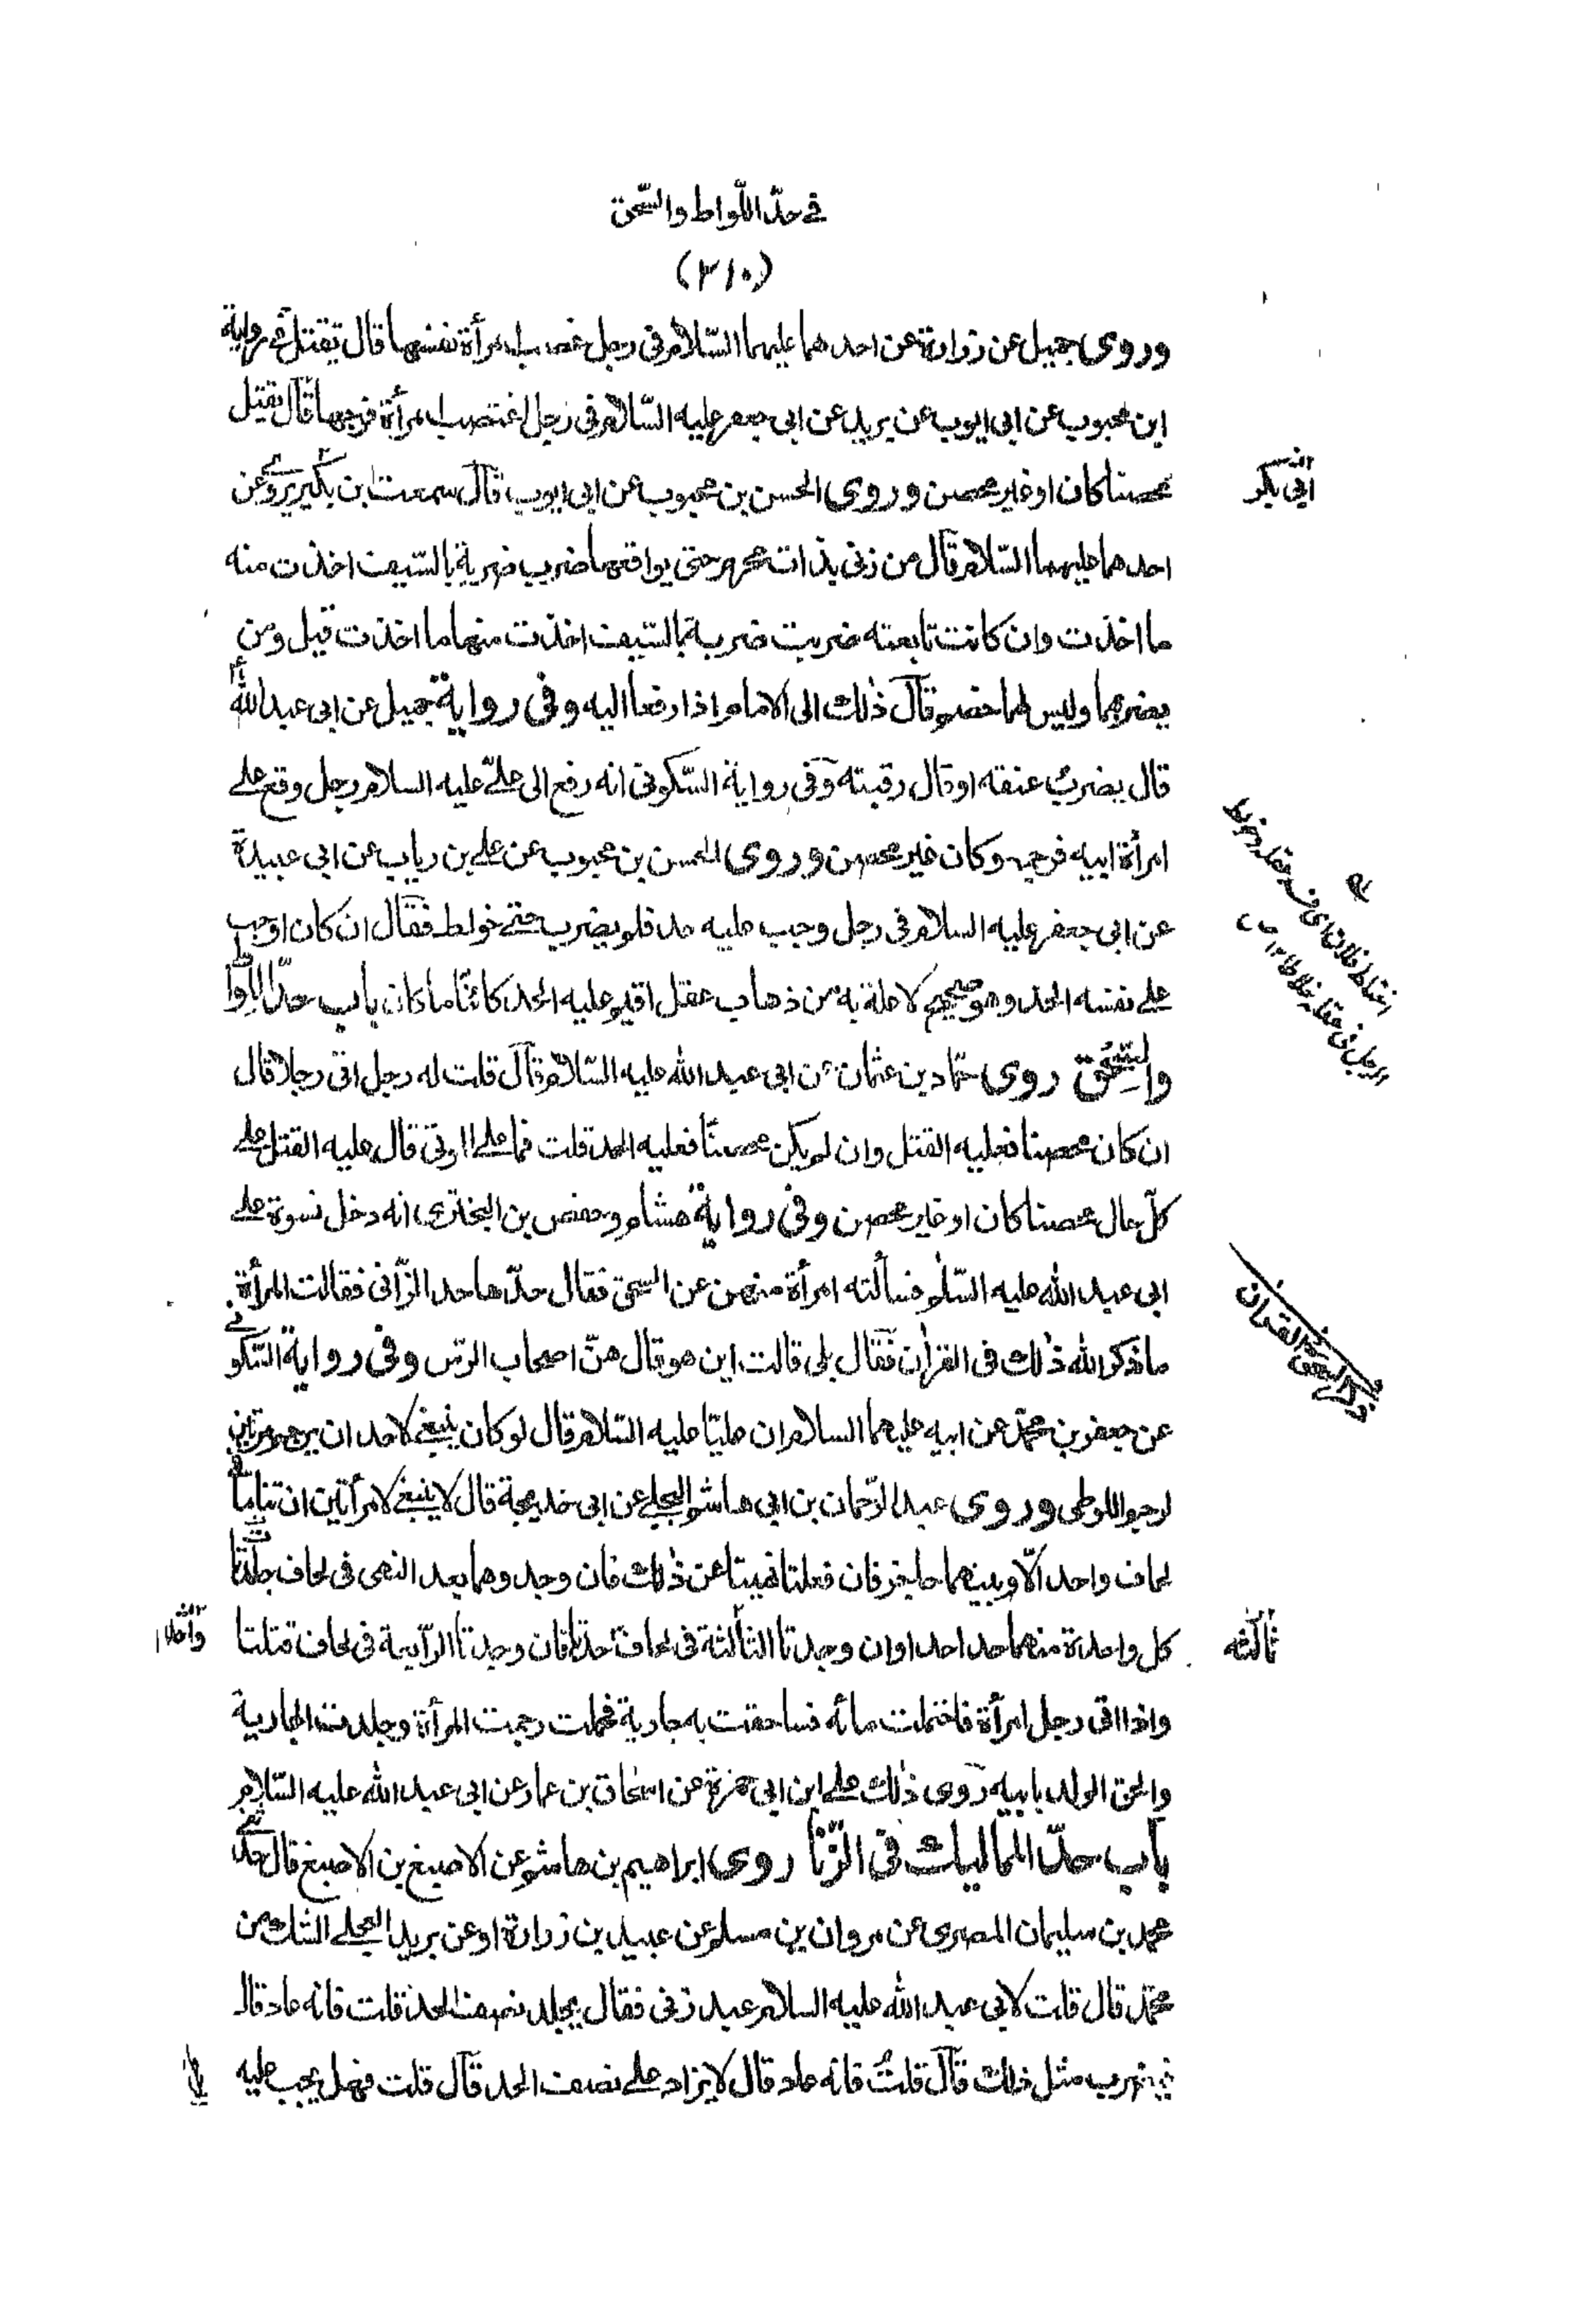 في حدّ اللّواط والسّحق
(٣١٠)
وروى جميل عن زرارة عن احدهما عليهما السّلام في رجل غصب امرأة نفسها قال يقتل وفي رواية
ابن محبوب عن ابي ايوب عن بريد عن ابي جعفر عليه السّلام في رجل اغتصب امرأة فرجها قال يقتل
محصنا كان او غير محصن وروى الحسن بن محبوب عن ابي ايوب قال سمعت ابن بكير يروى عن
ابي بكر
احدهما عليهما السّلام قال من زنى بذات محرم حتى يواقعها ضرب ضربة بالسّيف اخذت منه
ما اخذت وان كانت تابعته ضربت ضربة بالسّيف اخذت منها ما اخذت قيل ومن
يضربهما وليس لهما خصم قال ذلك الى الامام اذا رفعا اليه وفى رواية جميل عن ابى عبد الله ع
قال يضرب عنقه او قال رقبته وفي رواية السّكوني انه رفع الى علىّ عليه السلام رجل وقع على
امرأة ابيه فرجمه وكان غير محصن وروى الحسن بن محبوب عن على بن رياب عن ابى عبيدة
عن ابى جعفر عليه السلام في رجل وجب عليه حد فلم يضرب حتى خولط فقال ان كان اوجب
على نفسه الحد وهو صحيح لا علة به من ذهاب عقل اقيم عليه الحد كائنا ما كان باب حدّ اللّواط
والسّحق روى حمّاد بن عثمان عن ابى عبد الله عليه السّلام قال قلت له رجل اتى رجلا قال
ان كان محصنا فعليه القتل وان لم يكن محصنا فعليه الحد قلت فما على الموتى قال عليه القتل على
كلّ حال محصنا كان او غير محصن وفى رواية هشام وحفص بن البخترى انه دخل نسوة على
ابى عبد الله عليه السّلم فسألته امرأة منهن عن السحق فقال حدّها حد الزّانى فقالت المرأة
ما ذكر الله ذلك فى القران فقال بلى قالت اين هو قال هنّ اصحاب الرّس وفى رواية السّكونى
ذكر السحق فى القران
عن جعفر بن محمّد عن ابيه عليهما السلام ان عليّا عليه السّلام قال لو كان ينبغى لاحد ان يرجم مرتين
لرجم اللوطى وروى عبد الرّحمان بن ابى هاشم البجلى عن ابى خديجة قال لا ينبغى لامرأتين ان تناما فى
لحاف واحد الّا وبينهما حاجز فان فعلتا نهيتا عن ذلك فان وجدوهما بعد النهى فى لحاف جلّدتا
كل واحدة منهما حد احدا وان وجدتا الثالثة فى لحاف حدّتا فان وجدتا الرّابعة فى لحاف قتلتا
ثالثة
واذا اتى رجل امرأة فاحتملت مائه فساحقت به جارية فحملت رجمت المرأة وجلدت الجارية
والحق الولد بابيه روى ذلك على ابن ابى حمزة عن اسحاق بن عمار عن ابى عبد الله عليه السّلام
باب حدّ المماليك فى الزّنا روى ابراهيم بن هاشم عن الاصبغ بن الاصبغ قال حدّثنى
محمد بن سليمان المصرى عن مروان بن مسلم عن عبيد بن زرارة او عن بريد العجلى الشك من
محمّد قال قلت لابى عبد الله عليه السلام عبد زنى فقال يجلد نصف الحد قلت فانه عاد قال
فيضرب مثل ذلك قال قلت فانه عاد قال لا يزاد على نصف الحد قال قلت فهل يجب عليه